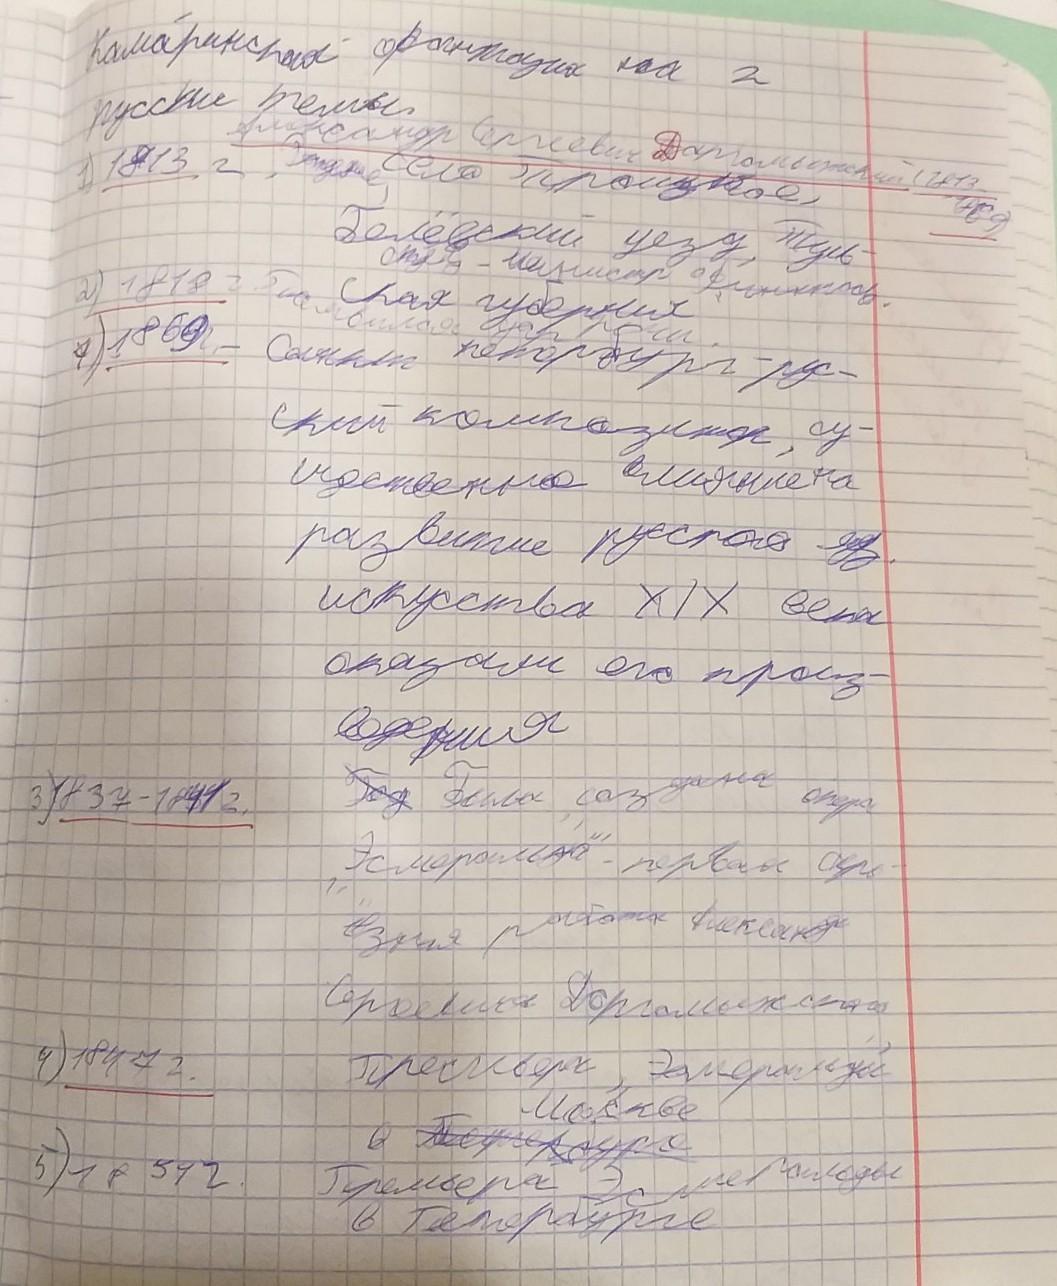 Камаринская фантазия на 2
русские темы.
Александр Сергеевич Даргомыжский (1813
1869)
1) 1813 г. село Троицкое,
Белёвский уезд, Туль-
отец - министр финансов.
2) 1818 г.
ская губерния
7) 1869г. - Санкт петербург - рус-
ский композитор, су-
щественно влияние на
развитие русского
искусства XIX века
оказали его произ-
ведения
3) 1837-1841г. Была создана опера
"Эсмеральда" - первая серь-
ёзная работа Александр
Сергеевича Даргомыжского
4) 1847г. Премьера "Эсмеральды"
в Москве
5) 1851г. Премьера Эсмеральды
в Петербурге